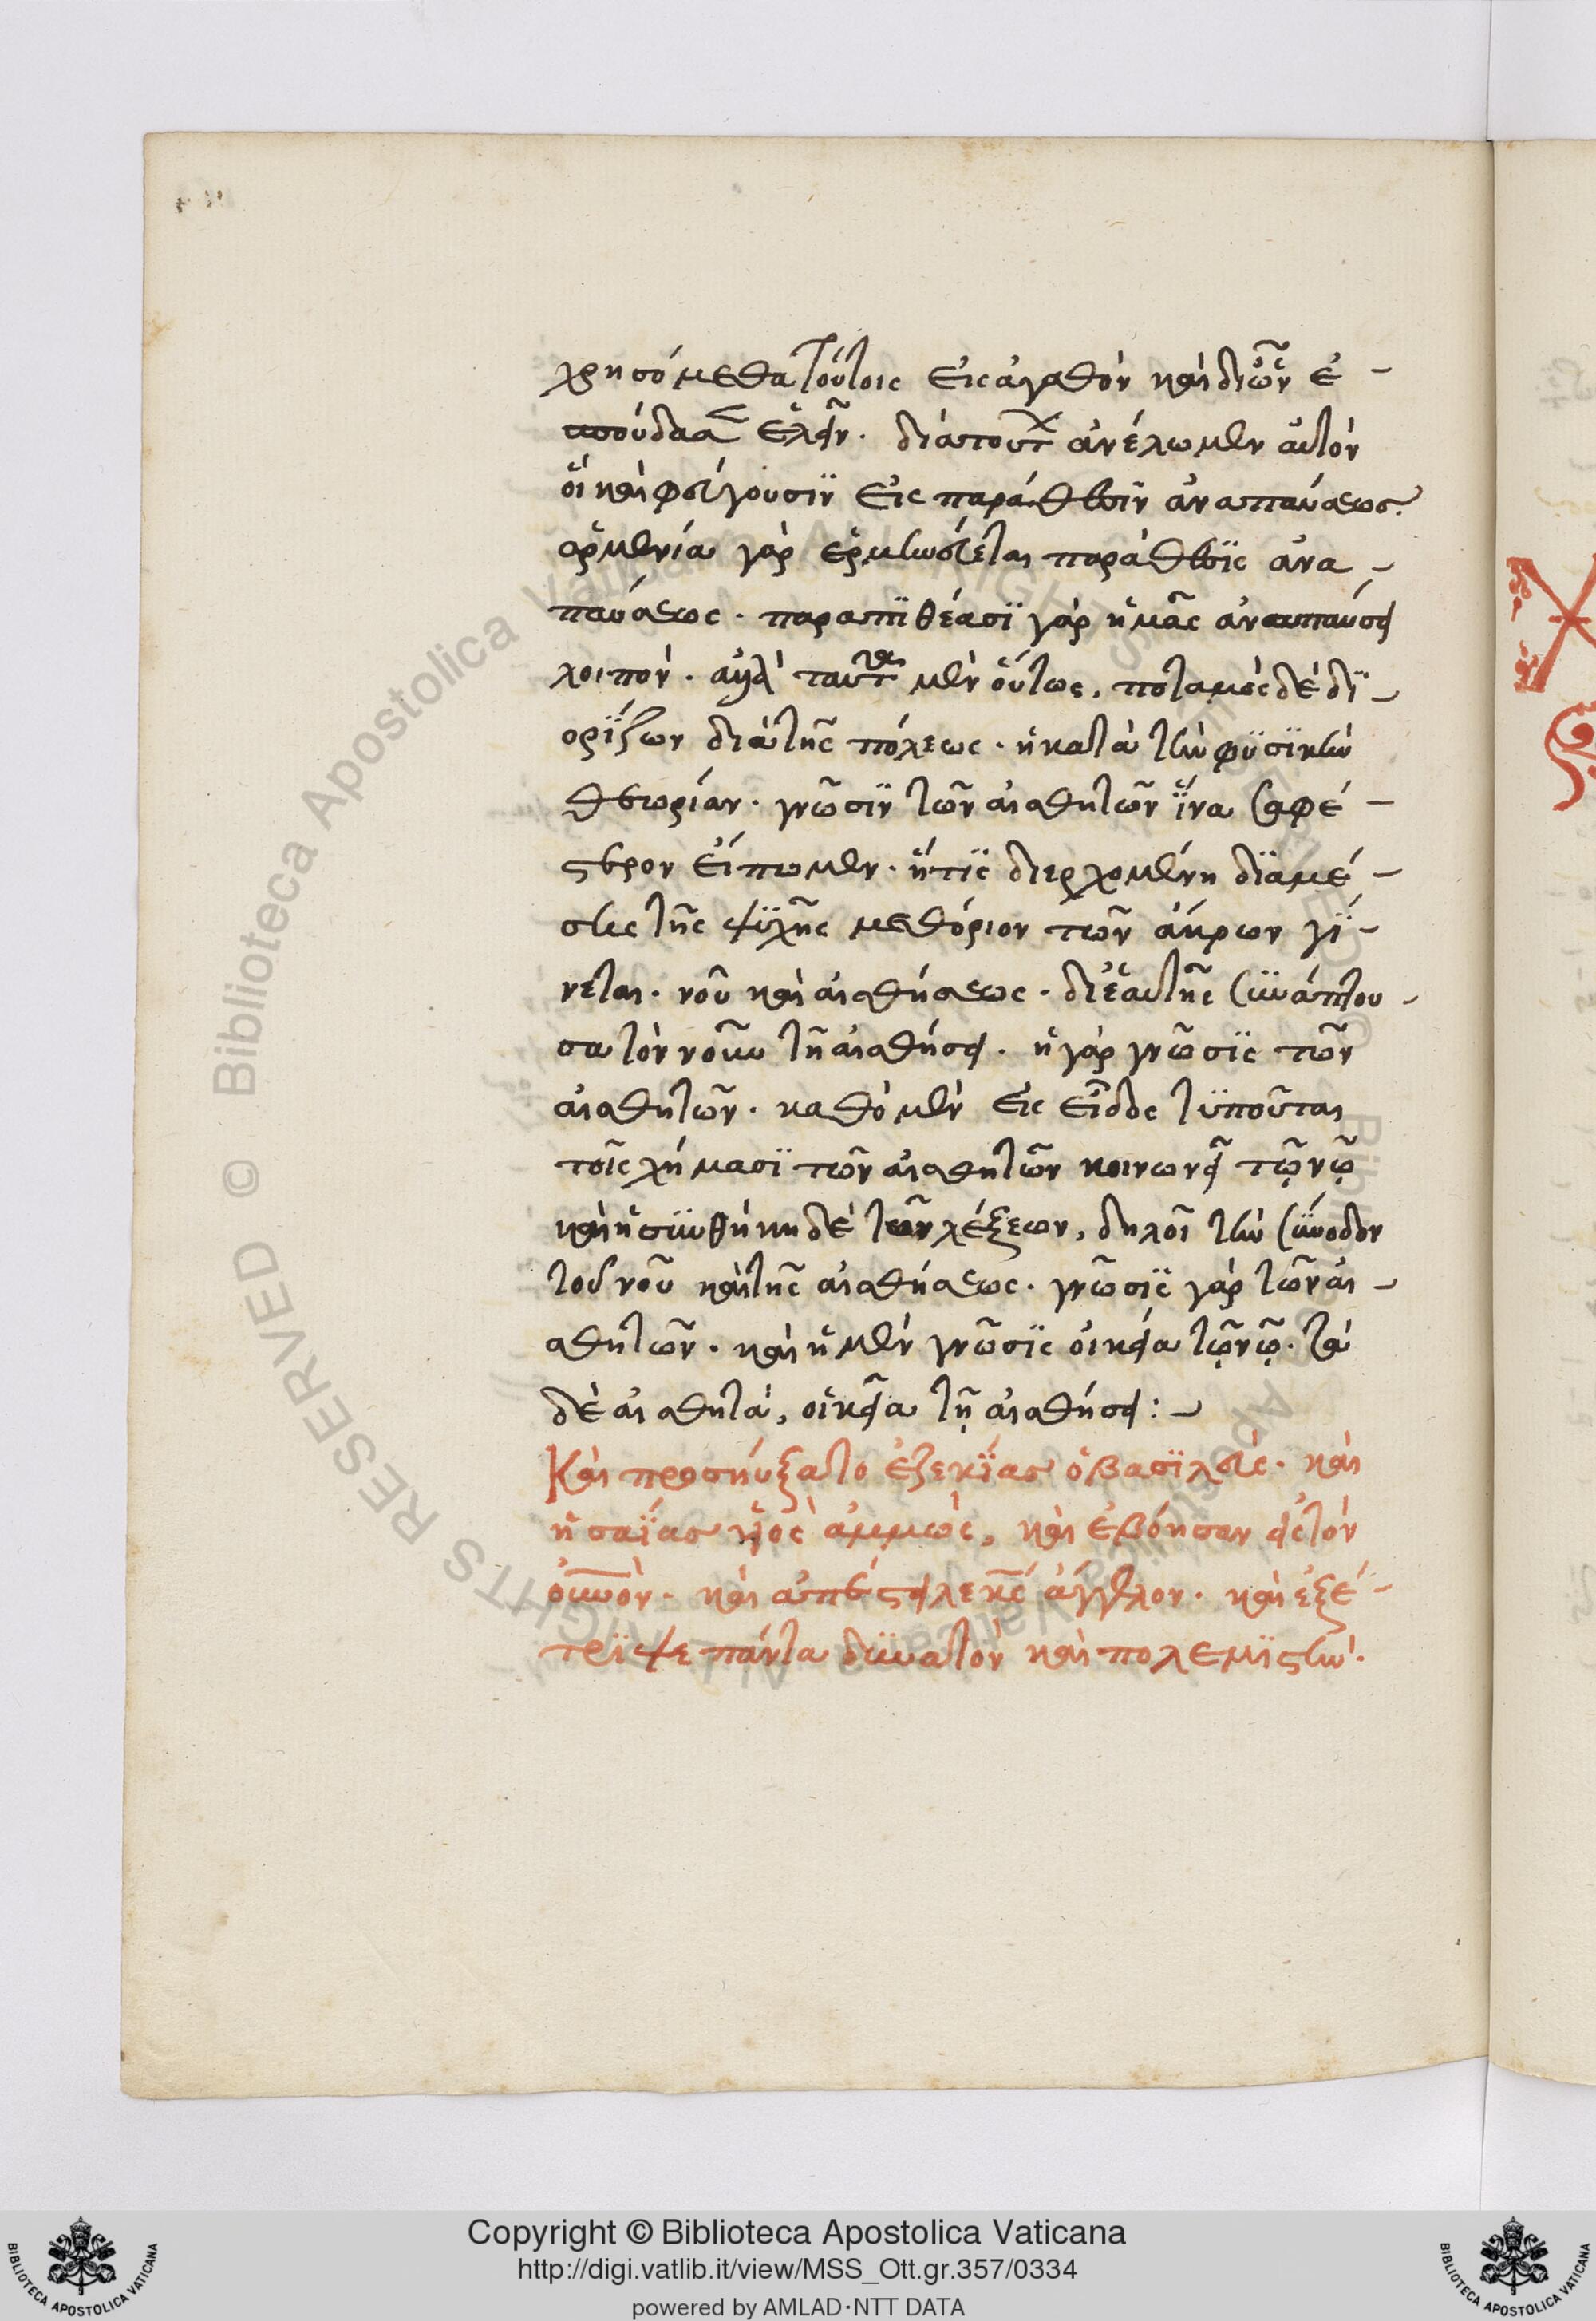 χρησόμεθα τούτοις εἰς ἀγαθὸν καὶ δι' ὧν ἐ-
σπούδασεν ἑλεῖν. διὰ τούτων ἀνέλωμεν αὐτὸν
οἳ καὶ φεύγουσιν εἰς παράθεσιν ἀναπαύσεως.
ἀρμενία γὰρ ἑρμηνεύεται παράθεσις ἀνα-
παύσεως. παρατιθέασι γὰρ ἡμᾶς ἀναπαύσει
λοιπόν. ἀλλὰ ταῦτα μὲν οὕτως. ποταμὸς δὲ δι-
ορίζων διὰ τῆς πόλεως. ἡ κατὰ τὴν φυσικὴν
θεωρίαν. γνῶσιν τῶν αἰσθητῶν ἵνα σαφέ-
στερον εἴπωμεν. ἥτις διερχομένη διὰ μέ-
σης τῆς ψυχῆς μεθόριον τῶν ἄκρων γί-
νεται. νοῦ καὶ αἰσθήσεως. δι' ἑαυτῆς συνάπτου-
σα τὸν νοῦν τῇ αἰσθήσει. ἡ γὰρ γνῶσις τῶν
αἰσθητῶν. καθὸ μὲν εἰς εἶδος τυποῦται
τοῖς χήμασι τῶν αἰσθητῶν κοινωνεῖ τῷ νῷ
καὶ ἡ συνθήκη δὲ τῶν λέξεων, δηλοῖ τὴν σύνοδον
τοῦ νοῦ καὶ τῆς αἰσθήσεως. γνῶσις γὰρ τῶν αἰ-
σθητῶν. καὶ ἡ μὲν γνῶσις οἰκεία τῷ νῷ. τὰ
δὲ αἰσθητά, οἰκεῖα τῇ αἰσθήσει:-
Καὶ προσηύξατο ἐζεκίας ὁ βασιλεύς. καὶ
ἡσαΐας υἱὸς ἀμμώς, καὶ ἐβόησαν εἰς τὸν
οὐνον. καὶ ἀπέστειλε κς ἄγγελον. καὶ ἐξέ-
τριψε πάντα δυνατὸν καὶ πολεμιστήν.
Copyright © Biblioteca Apostolica Vaticana
http://digi.vatlib.it/view/MSS_Ott.gr.357/0334
powered by AMLAD·NTT DATA